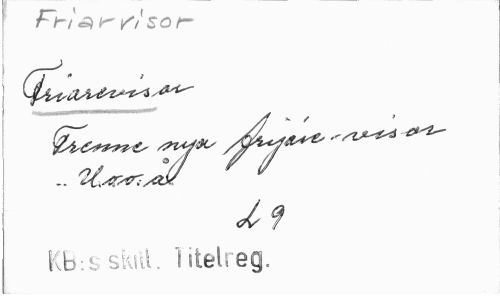 Friarvisor
Friarevisor
Trenne nya frijare-visor
.. U.o.o.å.
L 9
KB:s skill. Titelreg.